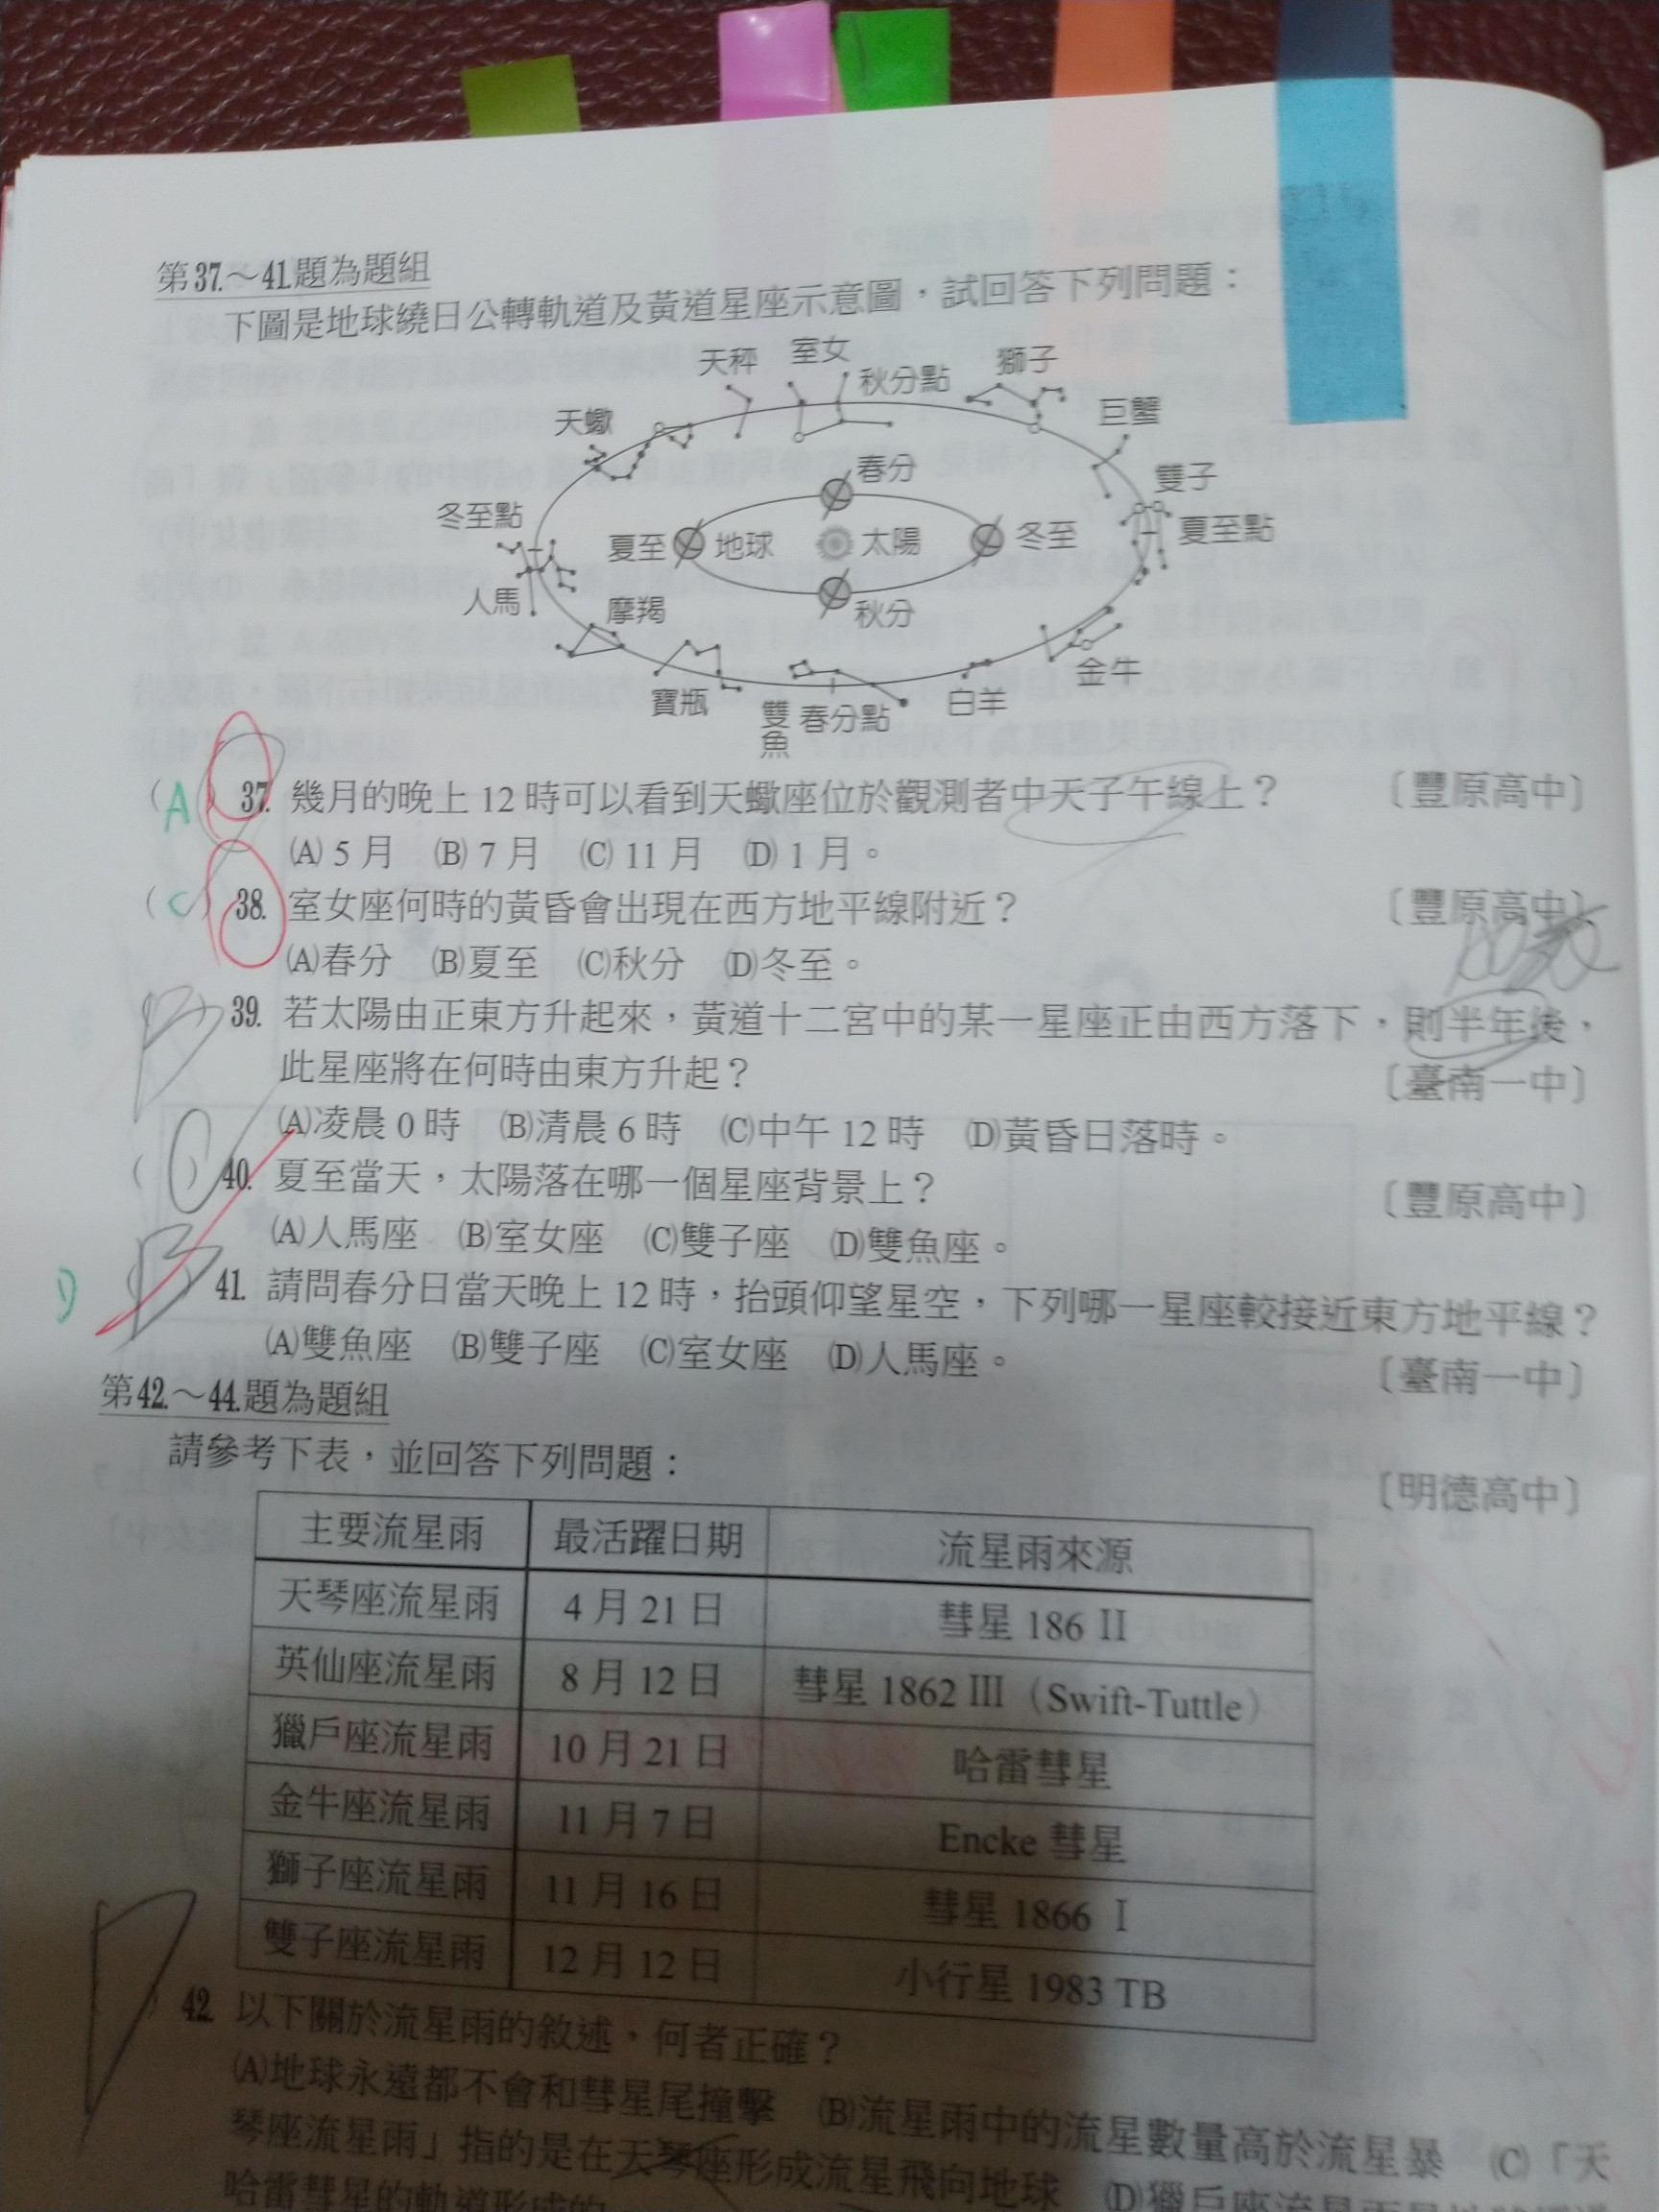 第37.～41.題為題組
下圖是地球繞日公轉軌道及黃道星座示意圖，試回答下列問題：
天秤 室女 秋分點 獅子
天蠍 巨蟹
春分 雙子
冬至點 夏至 地球 太陽 冬至 夏至點
人馬 摩羯 秋分
金牛
寶瓶 雙魚 春分點 白羊
(A) 37. 幾月的晚上 12 時可以看到天蠍座位於觀測者中天子午線上？ 〔豐原高中〕
(A) 5 月 (B) 7 月 (C) 11 月 (D) 1 月。
(C) 38. 室女座何時的黃昏會出現在西方地平線附近？ 〔豐原高中〕
(A)春分 (B)夏至 (C)秋分 (D)冬至。
39. 若太陽由正東方升起來，黃道十二宮中的某一星座正由西方落下，則半年後，
此星座將在何時由東方升起？ 〔臺南一中〕
(A)凌晨 0 時 (B)清晨 6 時 (C)中午 12 時 (D)黃昏日落時。
( ) 40. 夏至當天，太陽落在哪一個星座背景上？ 〔豐原高中〕
(A)人馬座 (B)室女座 (C)雙子座 (D)雙魚座。
D ( B ) 41. 請問春分日當天晚上 12 時，抬頭仰望星空，下列哪一星座較接近東方地平線？
(A)雙魚座 (B)雙子座 (C)室女座 (D)人馬座。 〔臺南一中〕
第42.～44.題為題組
請參考下表，並回答下列問題： 〔明德高中〕
主要流星雨 最活躍日期 流星雨來源
天琴座流星雨 4 月 21 日 彗星 186 II
英仙座流星雨 8 月 12 日 彗星 1862 III（Swift-Tuttle）
獵戶座流星雨 10 月 21 日 哈雷彗星
金牛座流星雨 11 月 7 日 Encke 彗星
獅子座流星雨 11 月 16 日 彗星 1866 I
雙子座流星雨 12 月 12 日 小行星 1983 TB
) 42. 以下關於流星雨的敘述，何者正確？
(A)地球永遠都不會和彗星尾撞擊 (B)流星雨中的流星數量高於流星暴 (C)「天
琴座流星雨」指的是在天琴座形成流星飛向地球 (D)獵戶座流星雨
哈雷彗星的軌道形成的